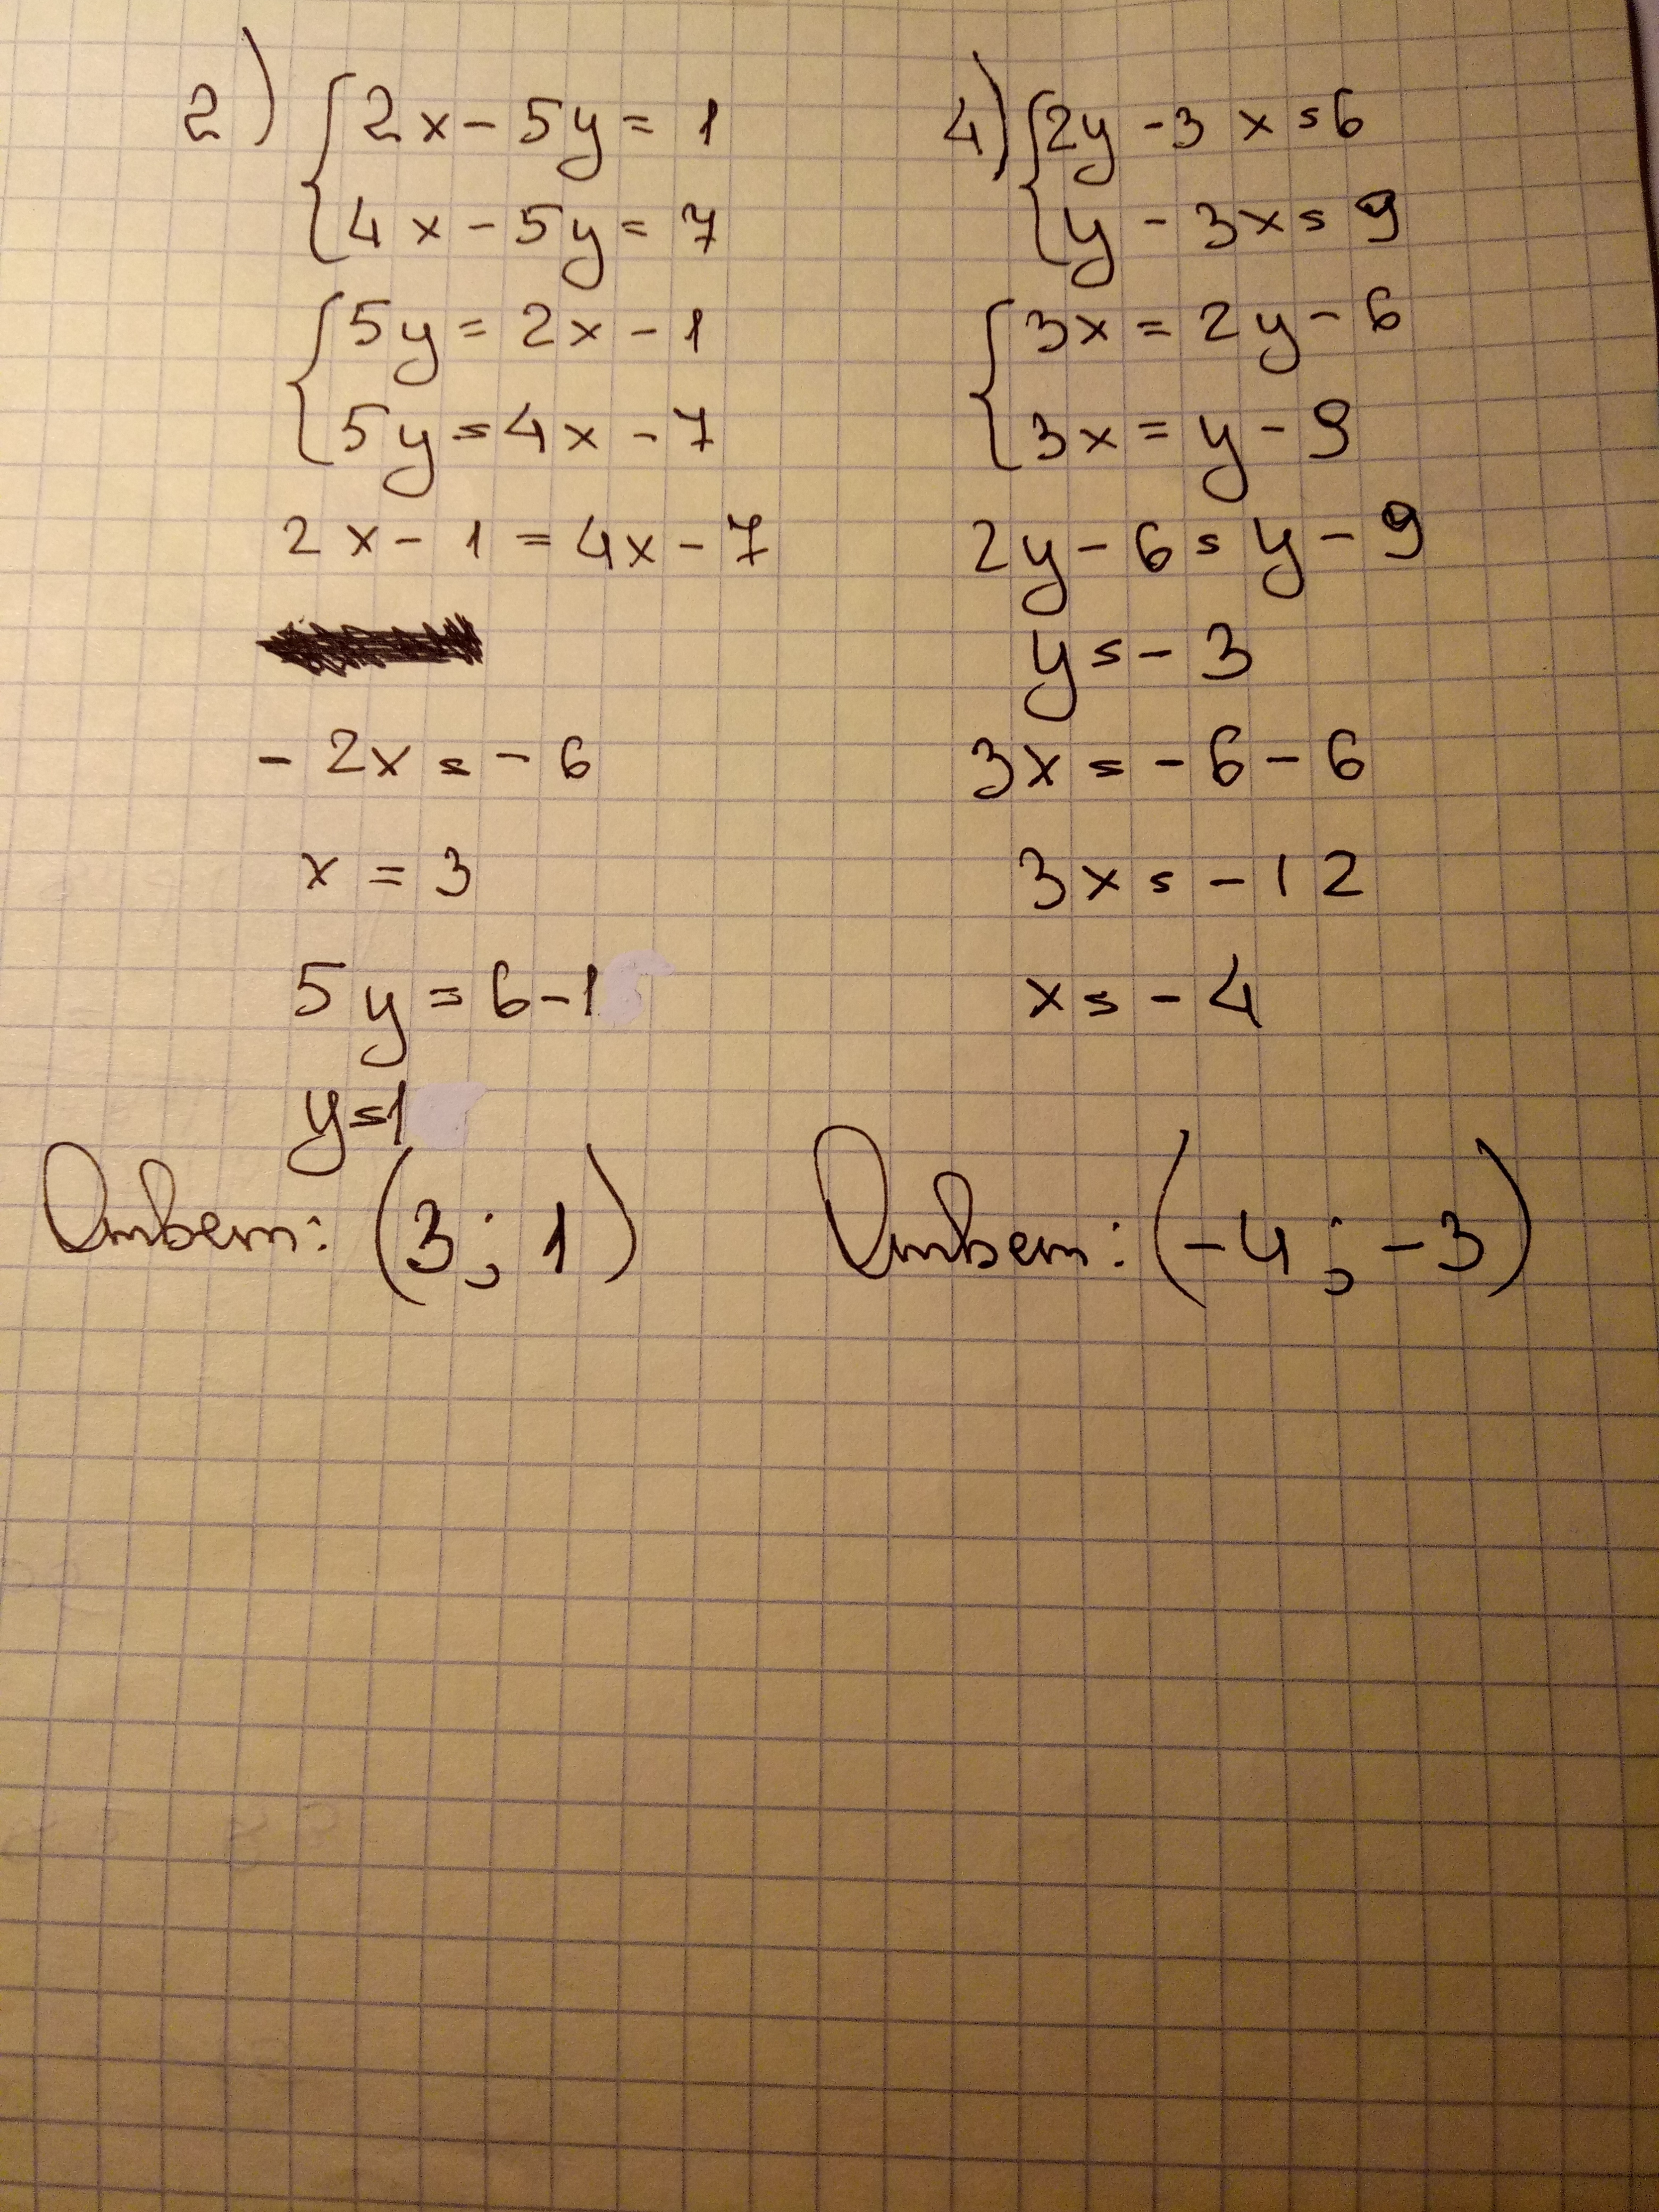 2) { 2x - 5y = 1
4x - 5y = 7
{ 5y = 2x - 1
5y = 4x - 7
2x - 1 = 4x - 7
- 2x = - 6
x = 3
5y = 6 - 1
y = 1
Ответ: (3; 1)
4) { 2y - 3x = 6
y - 3x = 9
{ 3x = 2y - 6
3x = y - 9
2y - 6 = y - 9
y = - 3
3x = - 6 - 6
3x = - 12
x = - 4
Ответ: (-4; -3)